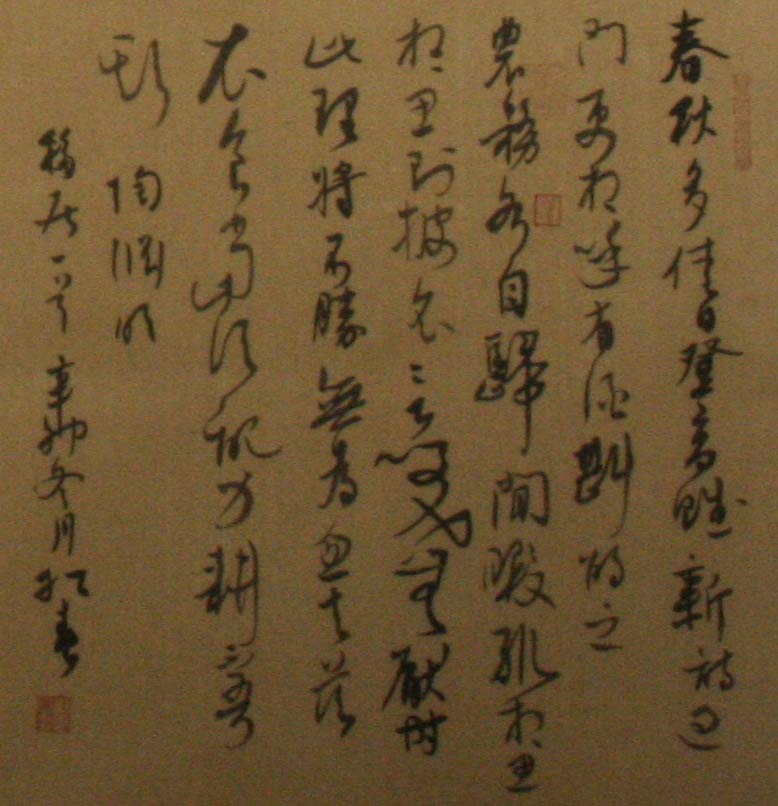 春秋多佳日登高賦新詩過
門更相呼有酒斟酌之
農務各自歸間暇輒相思
相思則披衣言笑無厭時
此理將不勝無為忽去茲
衣食當須紀力耕不吾
欺 陶淵明
移居一首 辛卯冬月